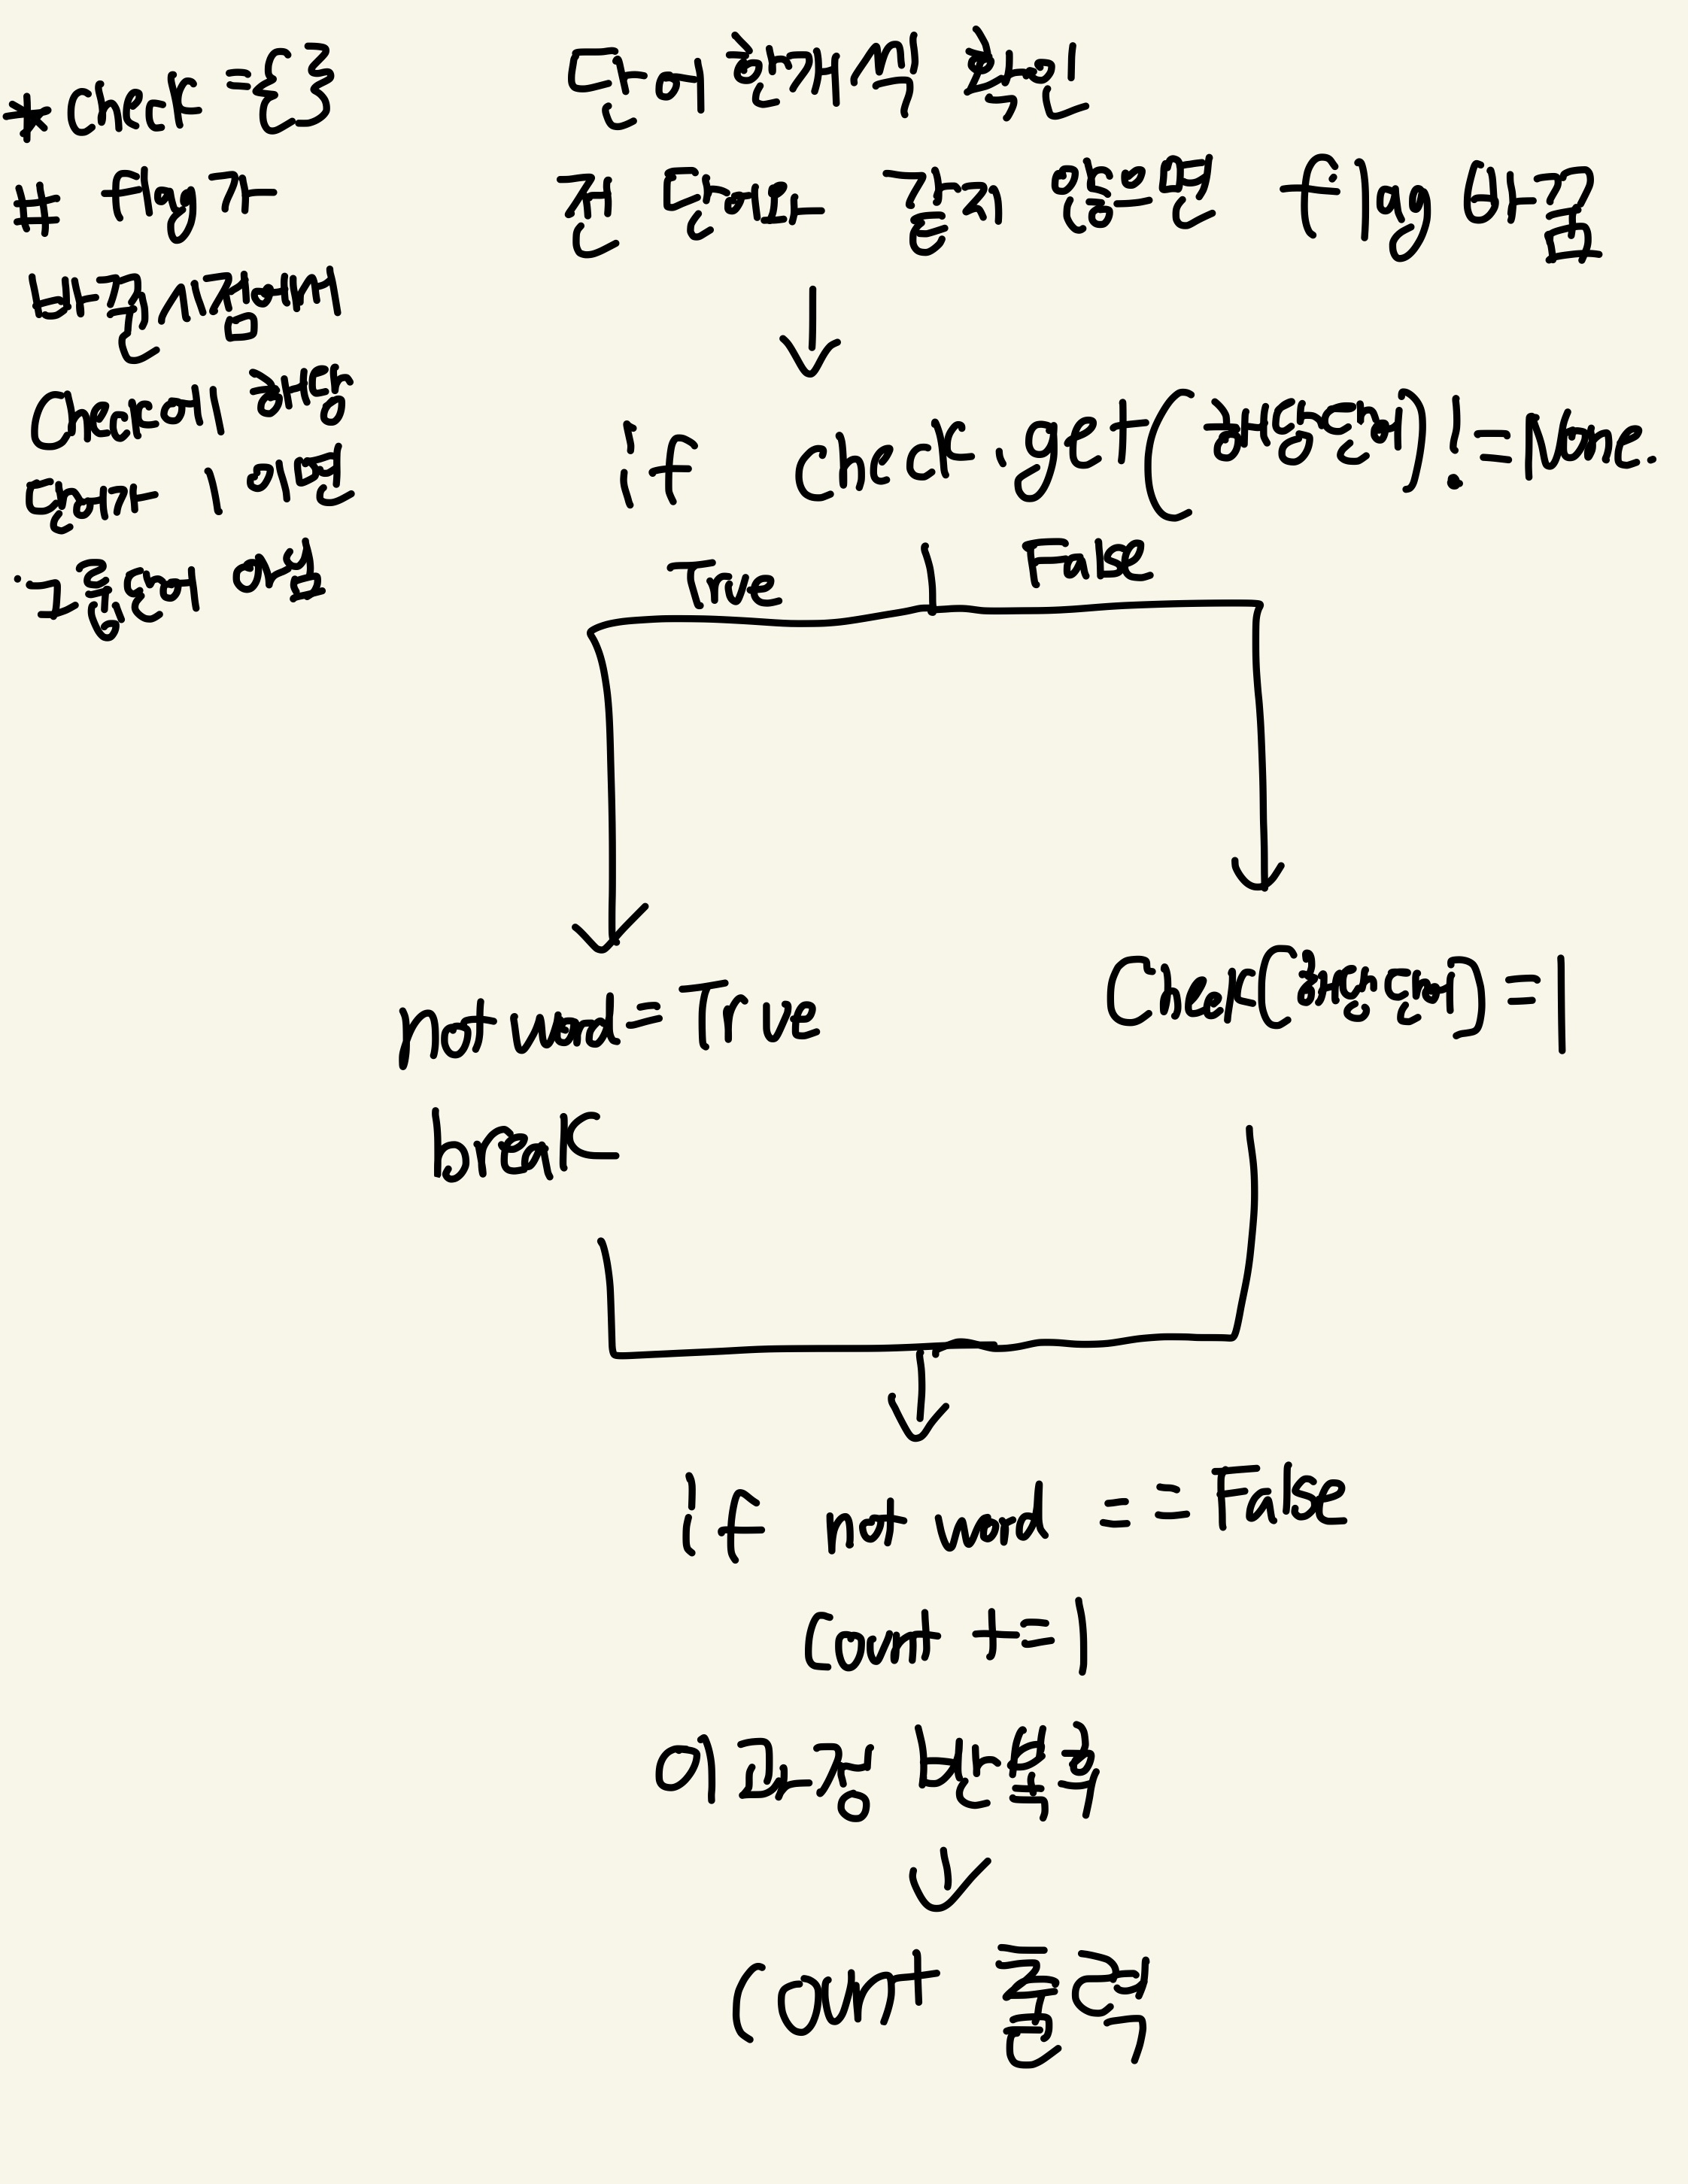 * check = { }
# flag가
바뀐시점에서
Check에 해당
단어가 1 이면
그룹단어 아님
단어 한개씩 확인
전 단어와 같지 않으면 flag 바뀜
if check.get(해당단어) != None.
True
False
not word = True
break
Check(해당단어) = 1
if not word == False
Count += 1
이과정 반복후
Count 출력